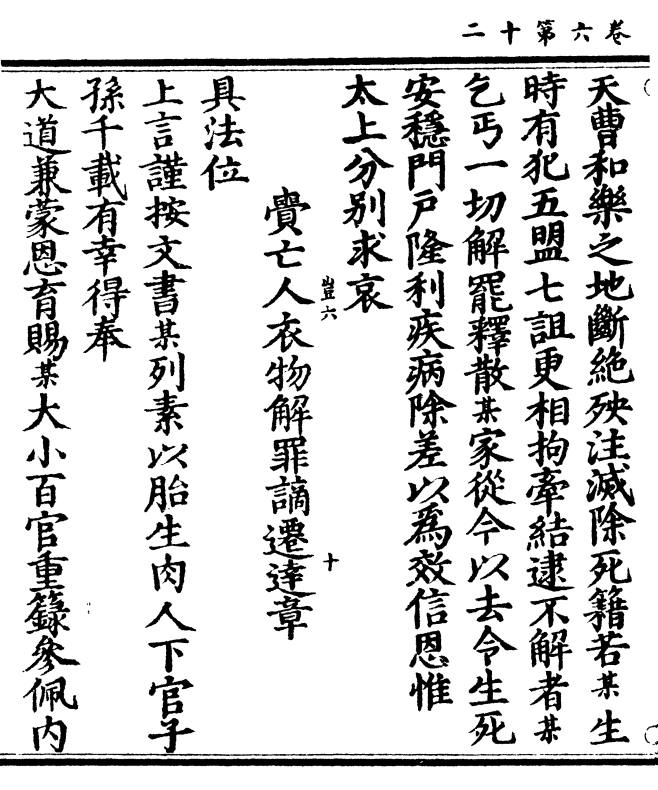 卷六第十二
天曹和樂之地斷絶殃注滅除死籍若某生
時有犯五盟七詛更相拘牽結逮不解者某
乞丐一切解罷釋散某家從今以去令生死
安穩門戶隆利疾病除差以爲效信恩惟
太上分別求哀
豈六
賷亡人衣物解罪謫遷達章
十
具法位
上言謹按文書某列素以胎生肉人下官子
孫千載有幸得奉
大道兼蒙恩育賜某大小百官重籙參佩内